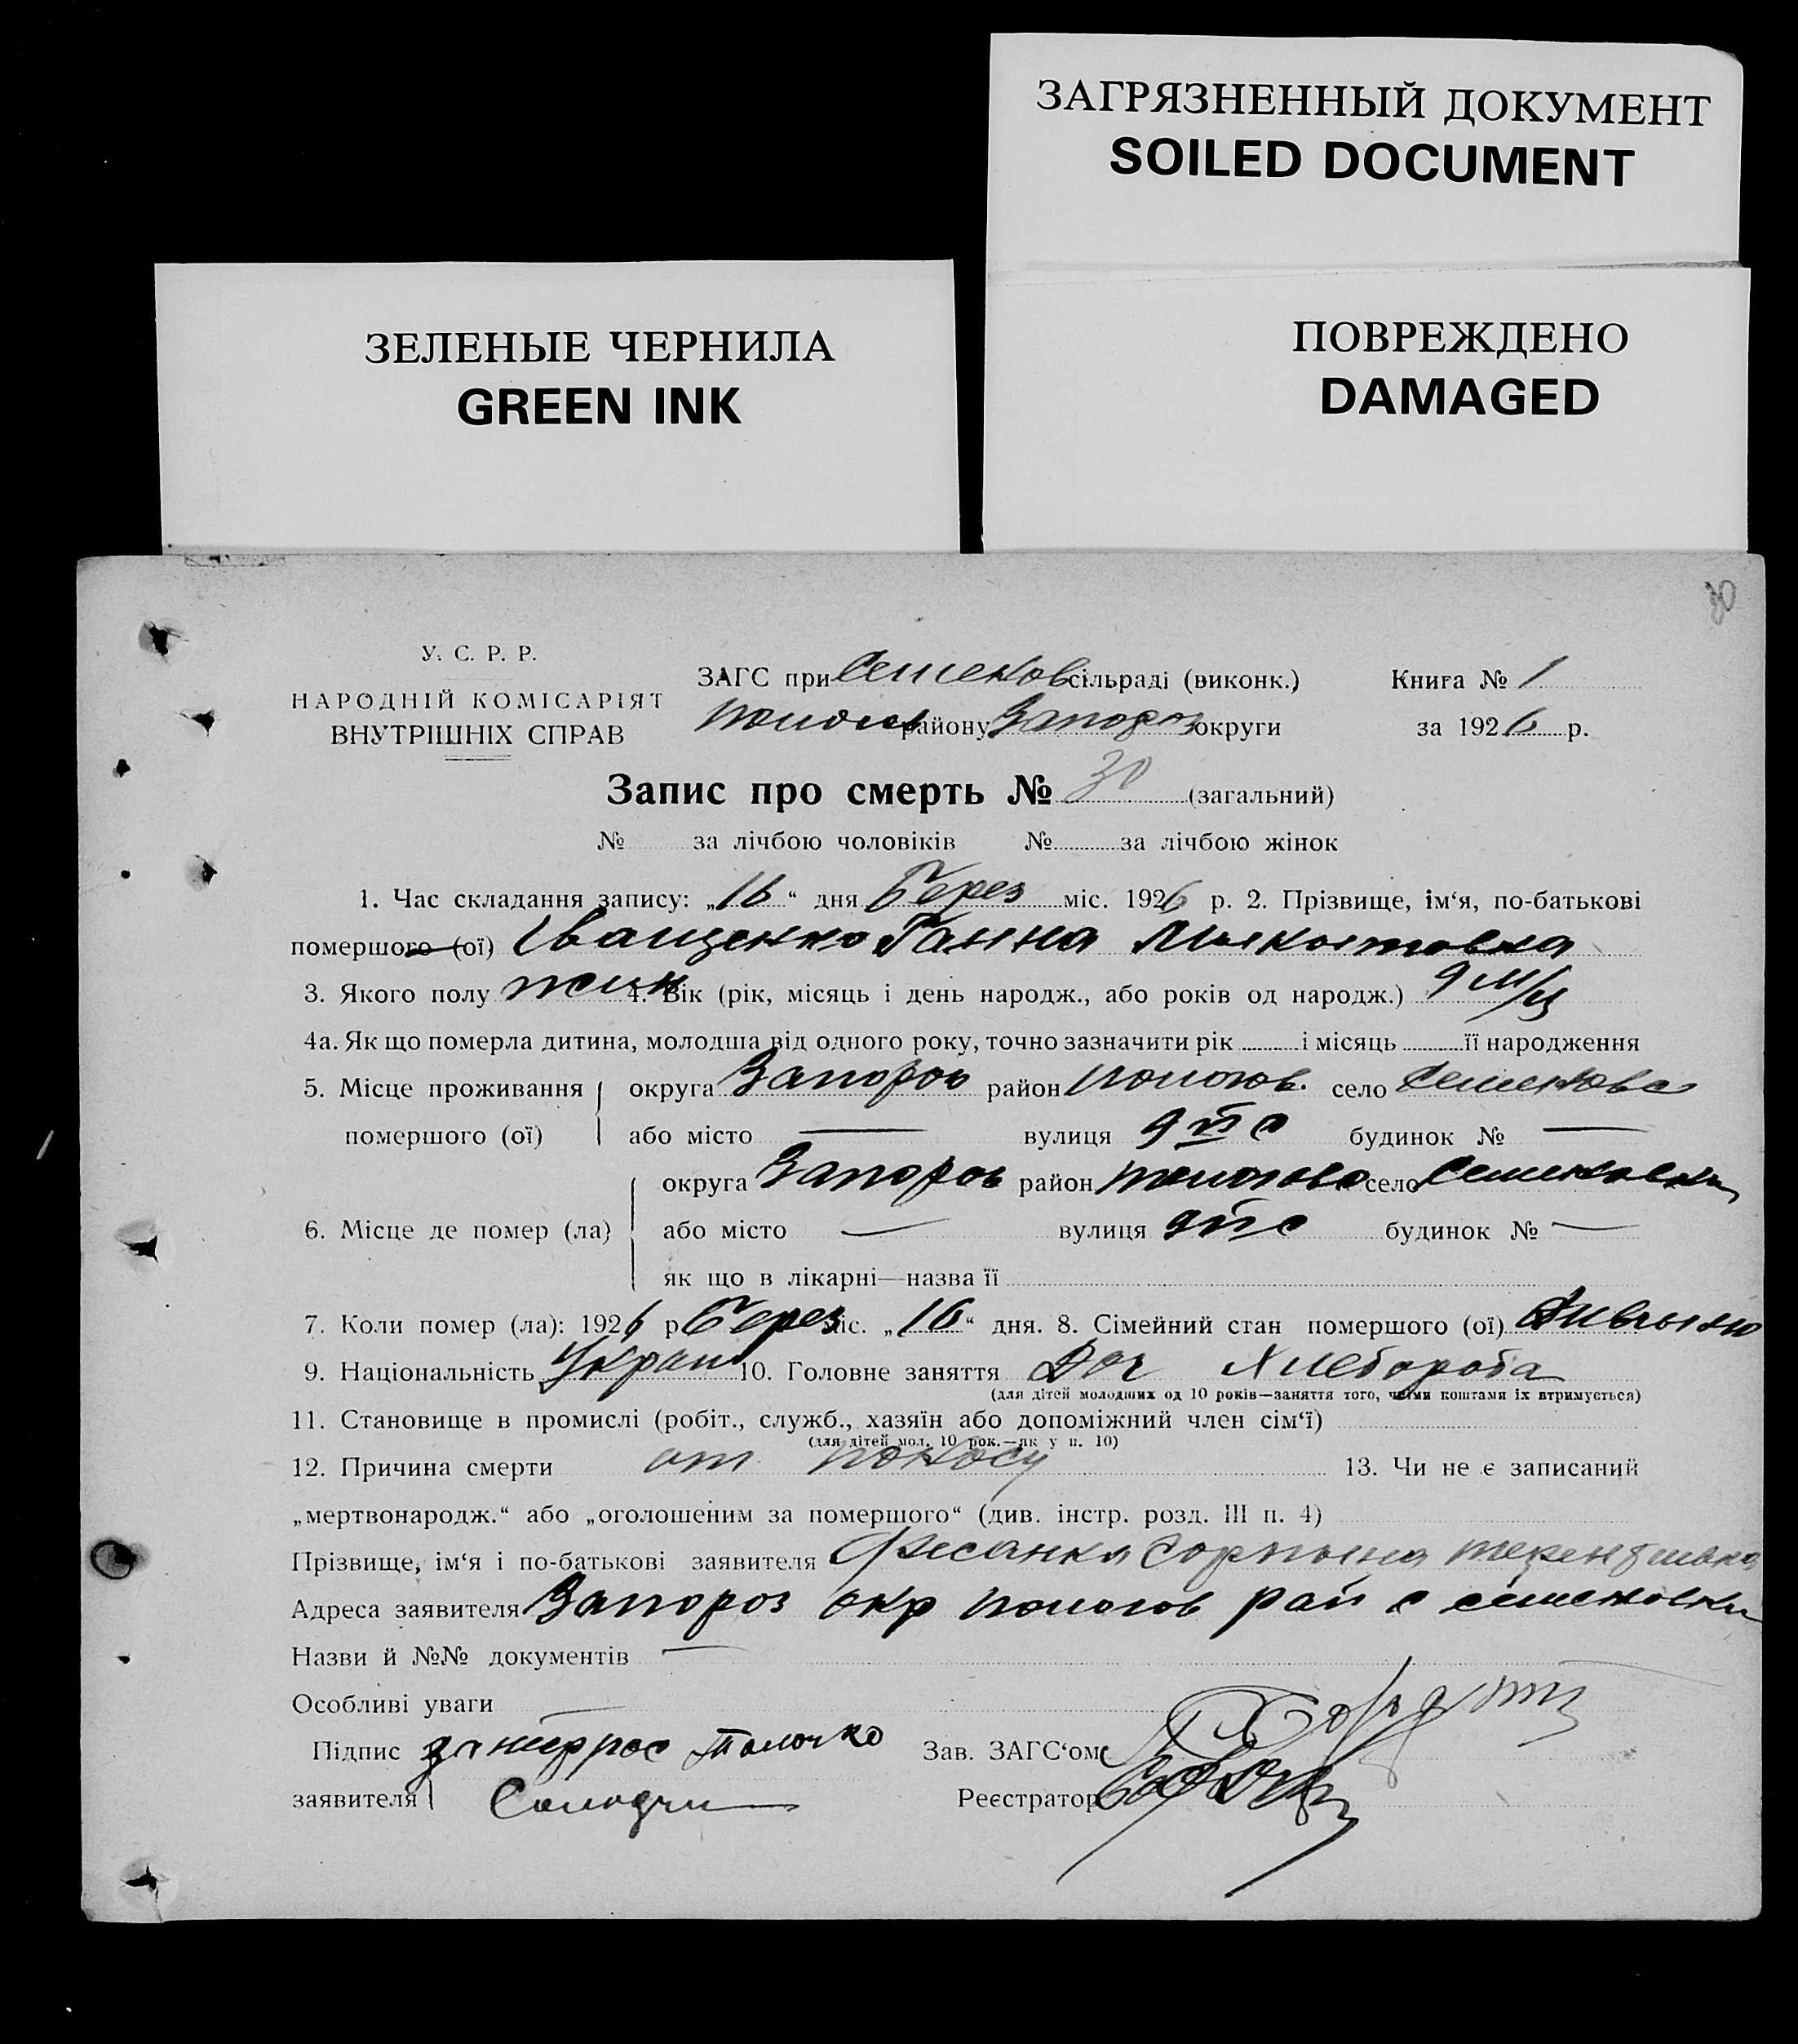 ЗАГРЯЗНЕННЫЙ ДОКУМЕНТ
SOILED DOCUMENT
ЗЕЛЕНЫЕ ЧЕРНИЛА
GREEN INK
ПОВРЕЖДЕНО
DAMAGED
30
У. С. Р. Р.
НАРОДНІЙ КОМІСАРІЯТ
ВНУТРІШНІХ СПРАВ
ЗАГС при Семенов сільраді (виконк.)
Пологов району Запороз округи
Книга № 1
за 1926 р.
Запис про смерть № 30 (загальний)
№ за лічбою чоловіків № за лічбою жінок
1. Час складання запису: „16“ дня Берез міс. 1926 р. 2. Прізвище, ім‘я, по-батькові
помершого (ої) Іващенко Ганна
3. Якого полу жин 4. Вік (рік, місяць і день народж., або років од народж.) 9 м/ц
4а. Як що померла дитина, молодша від одного року, точно зазначити рік і місяць її народження
5. Місце проживання помершого (ої) округа Запороз район Пологов. село Семеновка
або місто — вулиця будинок № —
6. Місце де помер (ла) округа Запороз район Пологово село Семеновки
або місто — вулиця будинок № —
як що в лікарні—назва її
7. Коли помер (ла): 1926 р Берез міс. „16“ дня. 8. Сімейний стан помершого (ої)
9. Національність Украин 10. Головне заняття Доч Хлебороба
(для дітей молодших од 10 років—заняття того, чиїми коштами їх втримується)
11. Становище в промислі (робіт., служб., хазяїн або допоміжний член сім‘ї)
(для дітей мол. 10 рок.—як у п. 10)
12. Причина смерти от поносу 13. Чи не є записаний
„мертвонародж.“ або „оголошеним за помершого“ (див. інстр. розд. III п. 4)
Прізвище, ім‘я і по-батькові заявителя
Адреса заявителя Запороз окр Пологов рай с Семеновки
Назви й №№ документів —
Особливі уваги —
Підпис заявителя
Зав. ЗАГС‘ом
Реєстратор